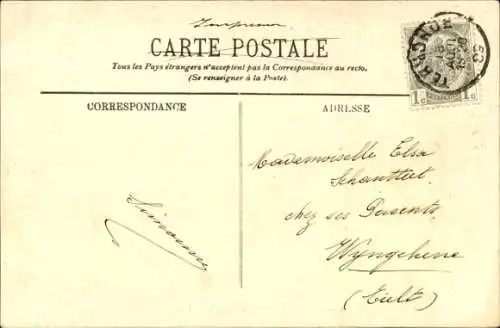 CARTE POSTALE
Tous les Pays étrangers n'acceptent pas la Correspondance au recto.
(Se renseigner à la Poste).
CORRESPONDANCE
ADRESSE
Mademoiselle Elsa
chez ses Parents
Wyngehene
(Tielt)
Simonne
1c 1c